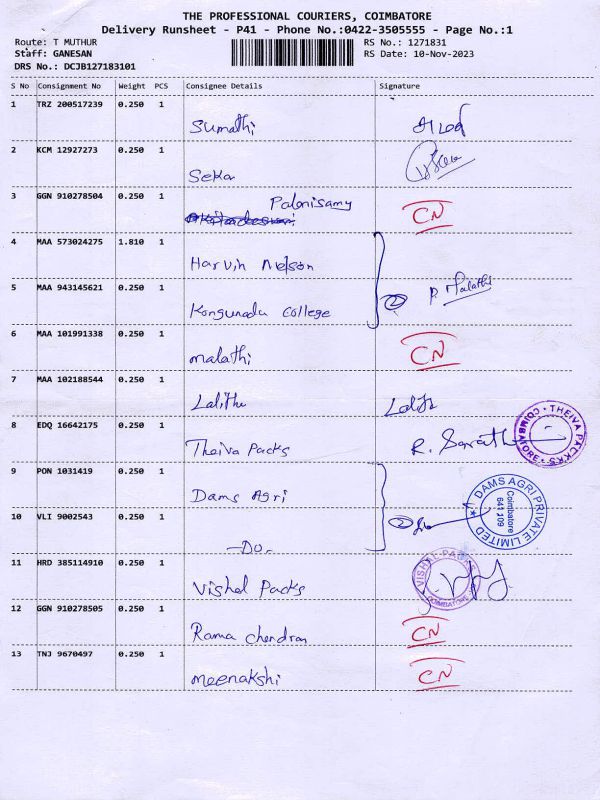 THE PROFESSIONAL COURIERS, COIMBATORE
Delivery Runsheet - P41 - Phone No.:0422-3505555 - Page No.:1
Route: T MUTHUR RS No.: 1271831
Staff: GANESAN RS Date: 10-Nov-2023
DRS No.: DCJB127183101
S No Consignment No Weight PCS Consignee Details Signature
1 TRZ 200517239 0.250 1
Sumathi
2 KCM 12927273 0.250 1
Sekar
3 GGN 910278504 0.250 1
Palanisamy
CN
4 MAA 573024275 1.810 1
Harvin Nelson
5 MAA 943145621 0.250 1
Kongunadu College ② P. Malathi
6 MAA 101991338 0.250 1
malathi CN
7 MAA 102188544 0.250 1
Lalitha
8 EDQ 16642175 0.250 1
Theiva Packs R. Sarath
THEIVA PACKS COIMBATORE
9 PON 1031419 0.250 1
Dams Agri
10 VLI 9002543 0.250 1
-Do- ②
DAMS AGRI PRIVATE LIMITED
Coimbatore
641 109
11 HRD 385114910 0.250 1
Vishal Packs
VISHAL PACKS COIMBATORE
12 GGN 910278505 0.250 1
Rama chendran CN
13 TNJ 9670497 0.250 1
meenakshi CN